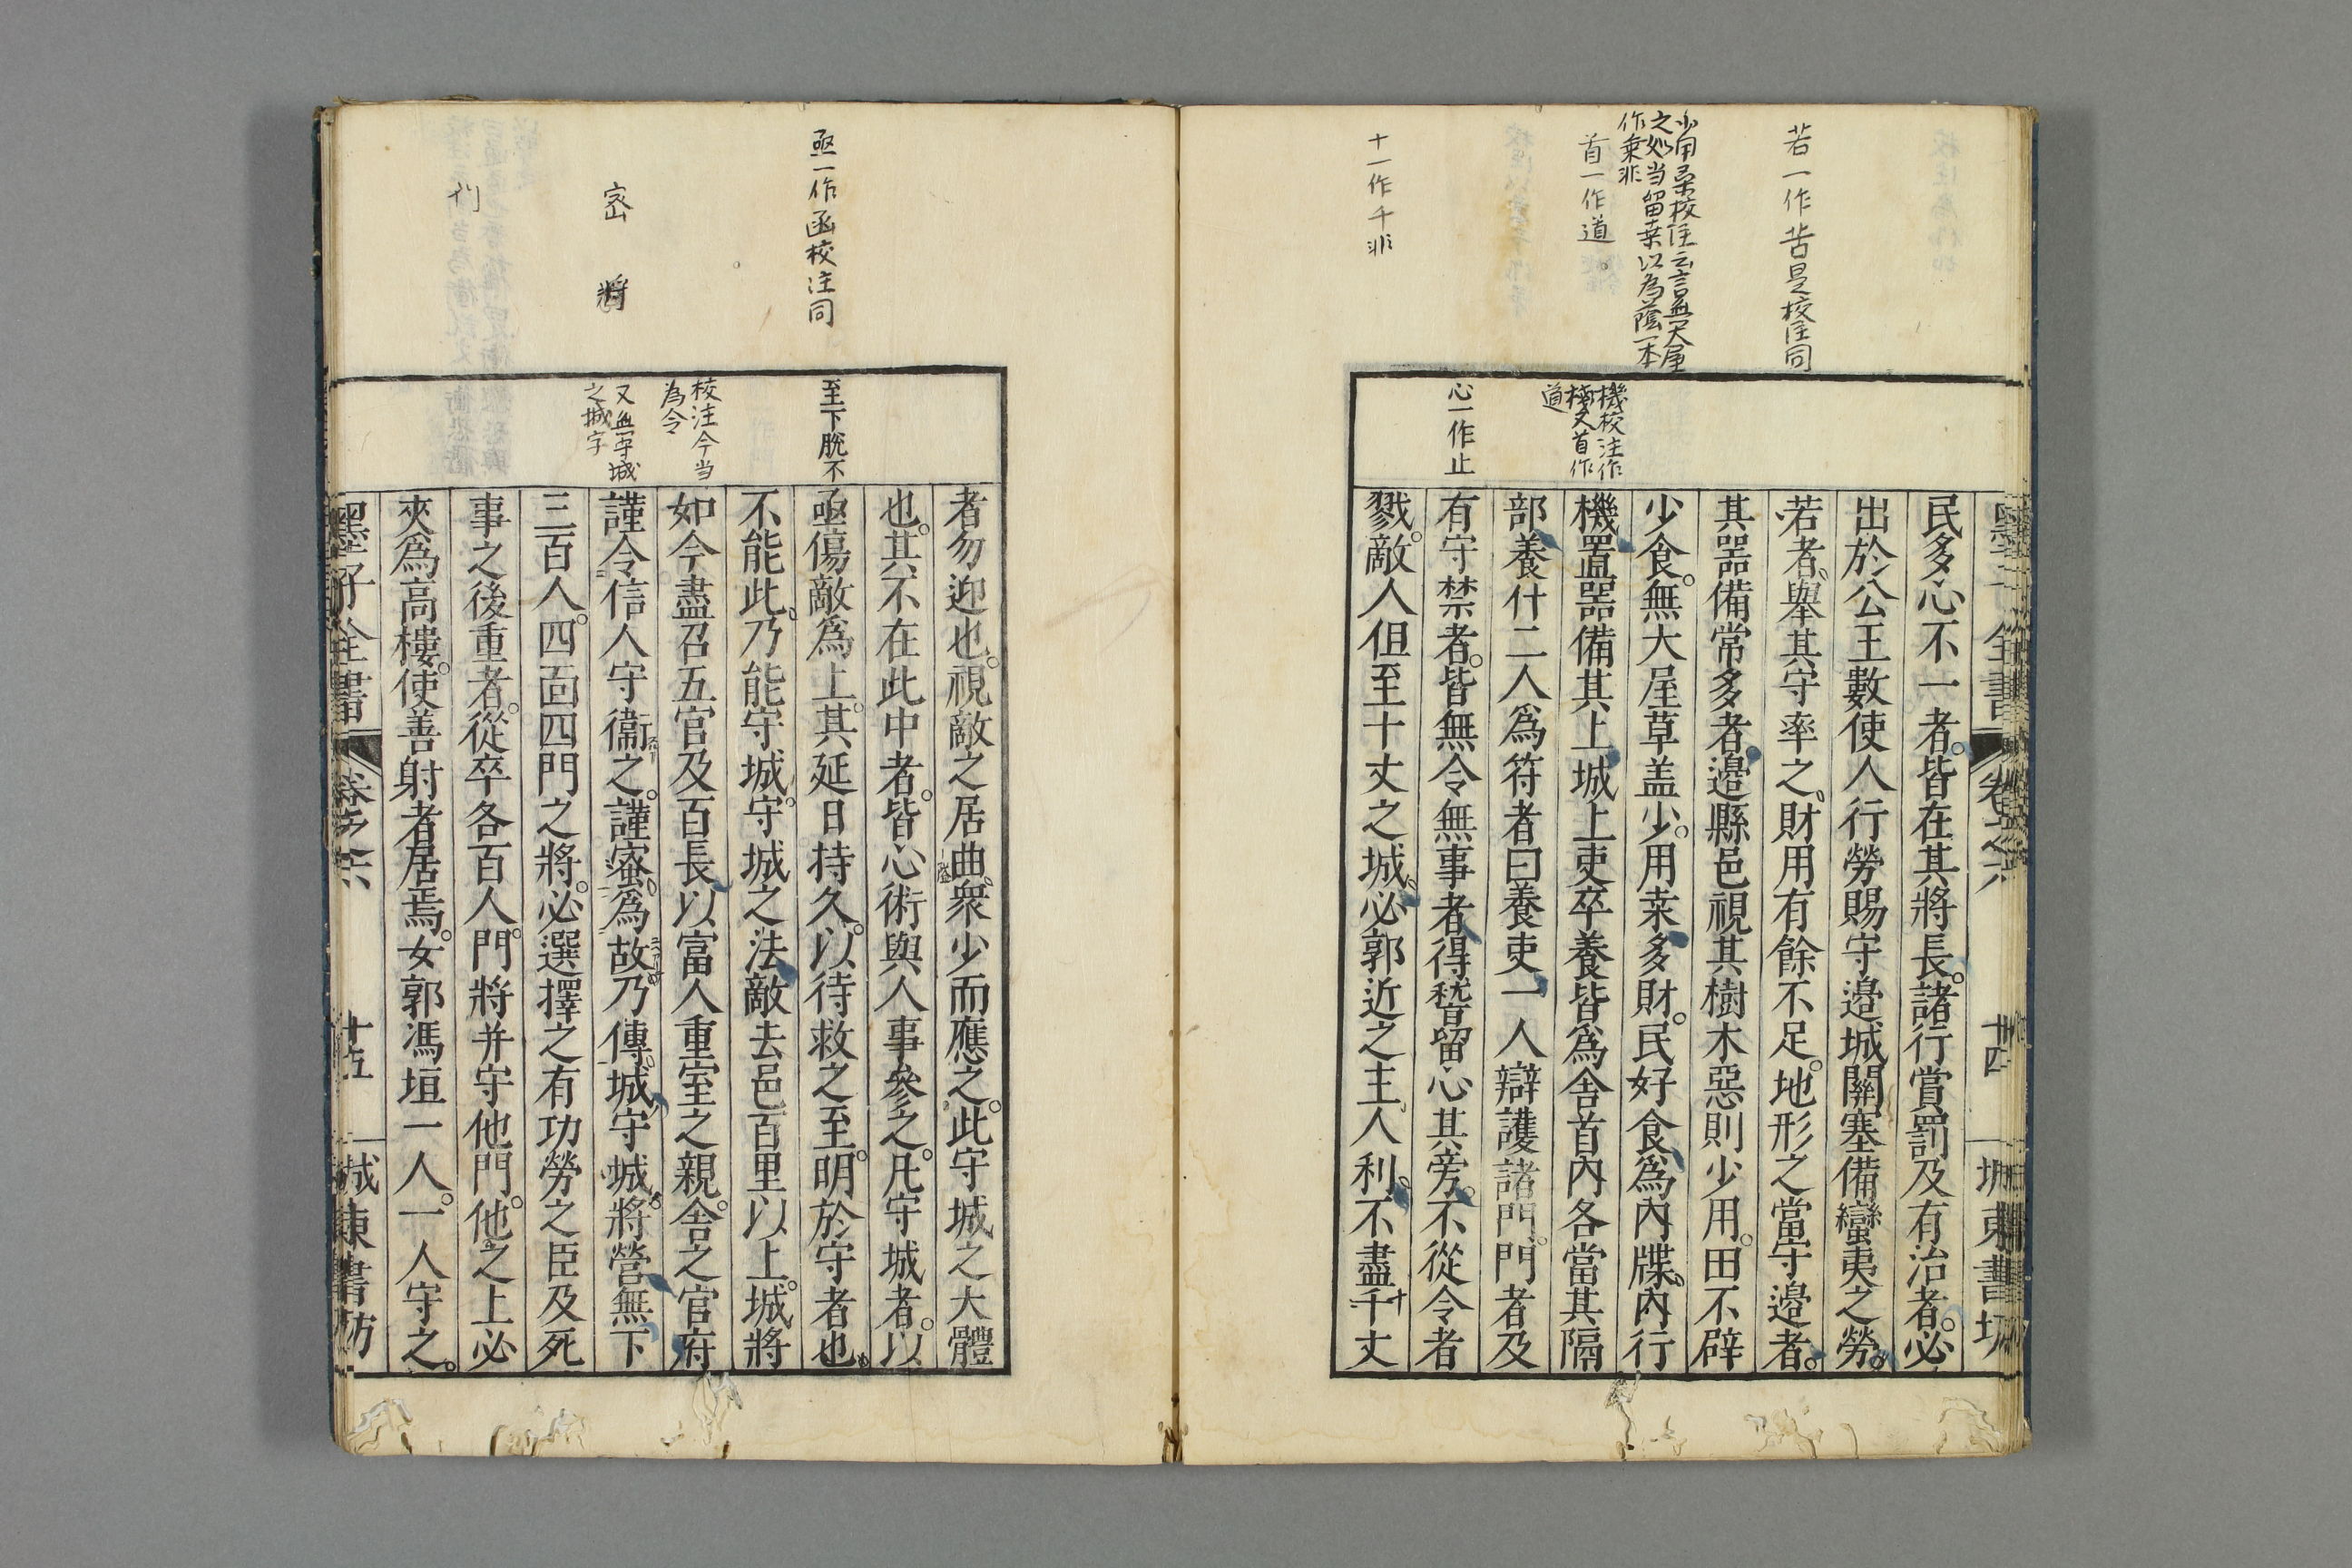 若一作苦是校注同
少用桑校注云言無大屋
之処当留桑以為蔭一本
作乗非
首一作道
十一作千非
機校注作
棧又首作
道
心一作止
墨子全書
卷之六
十四
城東書坊
民多心不一者。皆在其將長。諸行賞罰及有治者。必
出於公王數使人行勞賜守邊城關塞備蠻夷之勞。
若者舉其守率之。財用有餘不足。地形之當守邊者。
其器備常多者邊縣邑視其樹木惡則少用。田不辟
少食。無大屋草盖少。用桒多財。民好食爲內牒內行
機置器備其上城上吏卒養皆爲舍首內各當其隔
部養什二人爲符者曰養吏一人辯護諸門。門者及
有守禁者。皆無令無事者得稽留心其旁。不從令者
戮。敵人但至十丈之城。必郭近之主人利。不盡千丈
亟一作函校注同
密
將
刂
至下脫不
校注今当
為令
又無守城
之城字
者勿迎也。視敵之居曲。衆少而應之。此守城之大體
也。其不在此中者。皆心術與人事參之。凡守城者。以
亟傷敵爲上。其延日持久。以待救之至。明於守者也。
不能此。乃能守城。守城之法敵去邑百里以上。城將
如今盡召五官及百長以富人重室之親。舍之官府
謹令信人守衞之。謹密爲故。乃傳。城守城。將營無下
三百人。四面四門之將。必選擇之有功勞之臣及死
事之後重者。從卒各百人。門將并守他門。他之上必
夾爲高樓。使善射者居焉。女郭馮垣一人。一人守之。
墨子全書
卷之六
十五
城東書坊